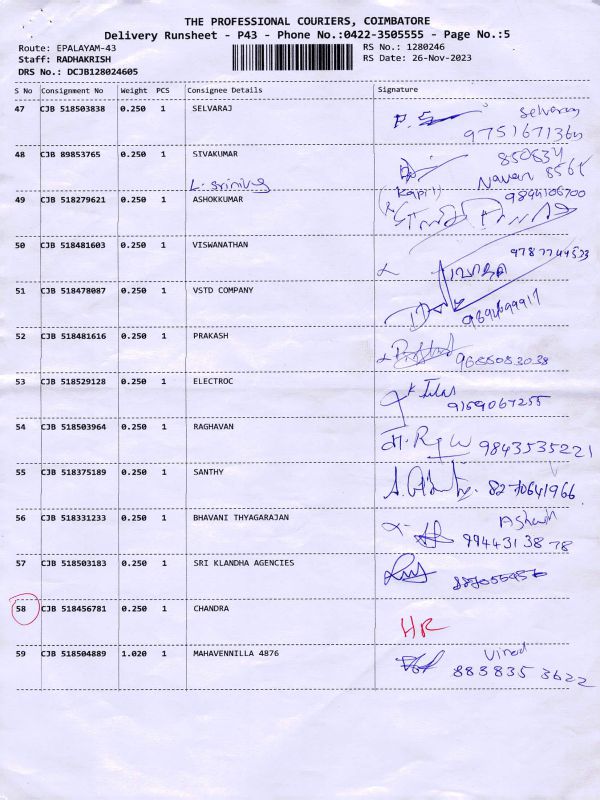 THE PROFESSIONAL COURIERS, COIMBATORE
Delivery Runsheet - P43 - Phone No.:0422-3505555 - Page No.:5
Route: EPALAYAM-43 RS No.: 1280246
Staff: RADHAKRISH RS Date: 26-Nov-2023
DRS No.: DCJB128024605
S No Consignment No Weight PCS Consignee Details Signature
47 CJB 518503838 0.250 1 SELVARAJ Selvaraj
48 CJB 89853765 0.250 1 SIVAKUMAR 850834
49 CJB 518279621 0.250 1 ASHOKKUMAR (Kapil) 9844106700
50 CJB 518481603 0.250 1 VISWANATHAN
51 CJB 518478087 0.250 1 VSTD COMPANY
52 CJB 518481616 0.250 1 PRAKASH 9688083038
53 CJB 518529128 0.250 1 ELECTROC 9159067255
54 CJB 518503964 0.250 1 RAGHAVAN 9843535221
55 CJB 518375189 0.250 1 SANTHY 8270641966
56 CJB 518331233 0.250 1 BHAVANI THYAGARAJAN 9944313878
57 CJB 518503183 0.250 1 SRI KLANDHA AGENCIES
58 CJB 518456781 0.250 1 CHANDRA HR
59 CJB 518504889 1.020 1 MAHAVENNILLA 4876 Vinod
883835 3622